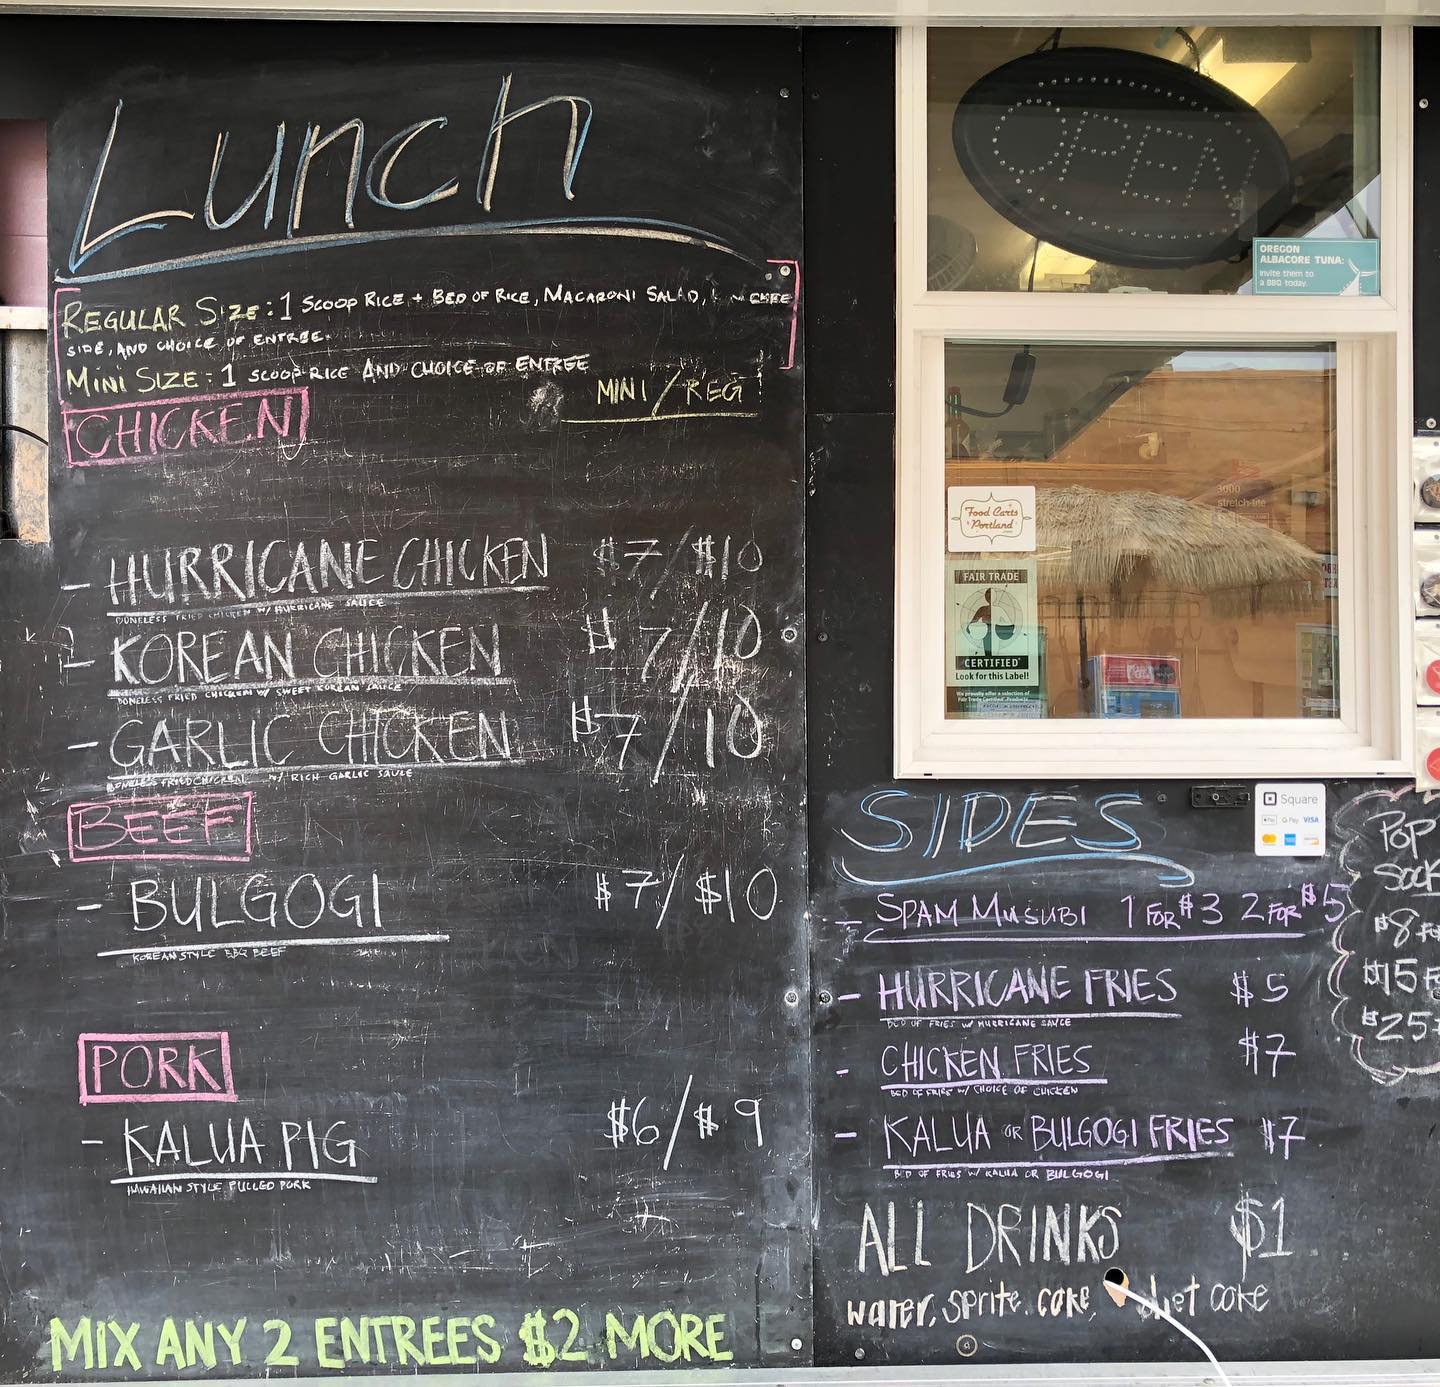 Lunch
REGULAR SIZE: 1 SCOOP RICE + BED OF RICE, MACARONI SALAD,
SIDE, AND CHOICE OF ENTREE.
MINI SIZE: 1 SCOOP RICE AND CHOICE OF ENTREE
MINI / REG
CHICKEN
- HURRICANE CHICKEN $7/$10
BONELESS FRIED CHICKEN W/ HURRICANE SAUCE
- KOREAN CHICKEN $7/10
BONELESS FRIED CHICKEN W/ SWEET KOREAN SAUCE
- GARLIC CHICKEN $7/10
BONELESS FRIED CHICKEN W/ RICH GARLIC SAUCE
BEEF
- BULGOGI $7/$10
KOREAN STYLE BBQ BEEF
PORK
- KALUA PIG $6/$9
HAWAIIAN STYLE PULLED PORK
MIX ANY 2 ENTREES $2 MORE
OPEN
OREGON
ALBACORE TUNA:
Invite them to
a BBQ today.
3000
stretch-tite
Food Carts
Portland
FAIR TRADE
CERTIFIED
Look for this Label!
We proudly offer a selection of
Fair Trade Certified Products
Square
Pay G Pay VISA
SIDES
- SPAM MUSUBI 1 FOR $3 2 FOR $5
- HURRICANE FRIES $5
BED OF FRIES W/ HURRICANE SAUCE
- CHICKEN FRIES $7
BED OF FRIES W/ CHOICE OF CHICKEN
- KALUA OR BULGOGI FRIES $7
BED OF FRIES W/ KALUA OR BULGOGI
ALL DRINKS $1
water, sprite, coke, diet coke
POP
SOCK
$8
$15
$25